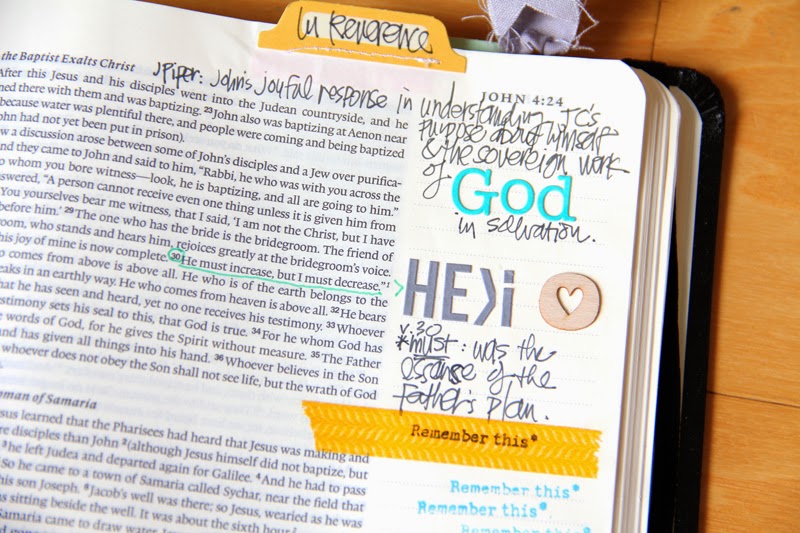 In Reverence
the Baptist Exalts Christ
JPiper: John's joyful response in understanding JC's
purpose about himself
& the sovereign work
of God
in salvation.
JOHN 4:24
After this Jesus and his disciples went into the Judean countryside, and he
ned there with them and was baptizing. 23John also was baptizing at Aenon near
because water was plentiful there, and people were coming and being baptized
ohn had not yet been put in prison).
w a discussion arose between some of John's disciples and a Jew over purifica-
nd they came to John and said to him, "Rabbi, he who was with you across the
o whom you bore witness—look, he is baptizing, and all are going to him."
swered, "A person cannot receive even one thing unless it is given him from
You yourselves bear me witness, that I said, 'I am not the Christ, but I have
before him.' 29The one who has the bride is the bridegroom. The friend of
room, who stands and hears him, rejoices greatly at the bridegroom's voice.
his joy of mine is now complete. 30He must increase, but I must decrease."1
o comes from above is above all. He who is of the earth belongs to the
eaks in an earthly way. He who comes from heaven is above all. 32He bears
hat he has seen and heard, yet no one receives his testimony. 33Whoever
estimony sets his seal to this, that God is true. 34For he whom God has
e words of God, for he gives the Spirit without measure. 35The Father
and has given all things into his hand. 36Whoever believes in the Son
whoever does not obey the Son shall not see life, but the wrath of God
HE>i
v. 30
*must: was the
essence of the
Father's plan.
Remember this*
Remember this*
Remember this*
Remember this*
oman of Samaria
sus learned that the Pharisees had heard that Jesus was making and
re disciples than John 2(although Jesus himself did not baptize, but
3he left Judea and departed again for Galilee. 4And he had to pass
So he came to a town of Samaria called Sychar, near the field that
his son Joseph. 6Jacob's well was there; so Jesus, wearied as he was
as sitting beside the well. It was about the sixth hour.
Samaria came to draw water.